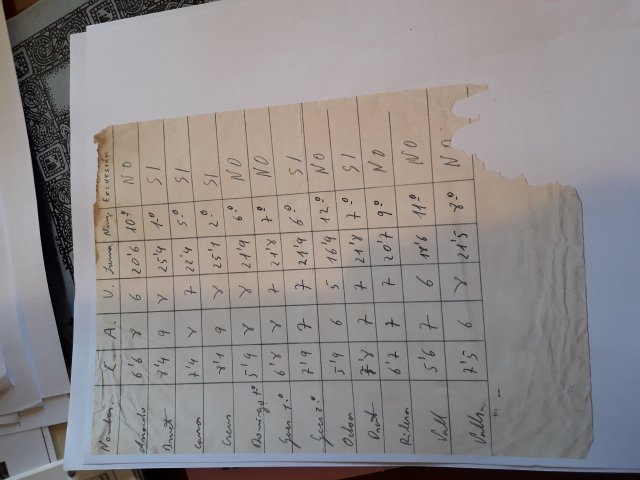 Nombre C. A. V. Suma Núm. EXCURSIÓN
6'6 8 6 20'6 10º NO
8'4 9 8 25'4 1º SI
7'4 8 7 22'4 5º SI
Creus 8'1 9 8 25'1 2º SI
Domingo 1º 5'9 8 8 21'9 6º NO
1º 6'8 8 7 21'8 7º NO
2º 7'9 7 7 21'9 6º SI
Ochoa 5'9 6 5 16'9 12º NO
Prat 7'8 7 7 21'8 7º SI
Ribera 6'7 7 7 20'7 9º NO
Vall 5'6 7 6 18'6 11º NO
Valls 7'5 6 8 21'5 8º NO